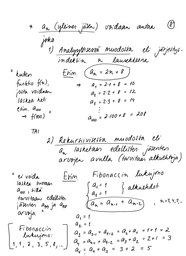 * aₙ (yleinen jäsen) voidaan antaa
⑧
joko
1) Analyyttisessä muodossa eli järjestys-
indeksin n lausekkeena
" kuten
funktio f(n),
josta voidaan
laskea heti
esim. a₁₀₀
→ f(100) "
Esim. aₙ = 2n + 8
→ a₁ = 2·1 + 8 = 10
a₂ = 2·2 + 8 = 12
a₃ = 2·3 + 8 = 14
a₁₀₀ = 2·100 + 8 = 208
TAI
2) Rekursiivisessa muodossa eli
aₙ lasketaan edellisten jäsenten
arvojen avulla (tarvitaan alkuehtoja)
" ei voida
laskea suoraan
a₁₀₀, vaan
tarvitaan edellisten
jäsenten a₉₉ ja a₉₈
arvoja "
Esim. Fibonaccin lukujono
a₁ = 1
a₂ = 1
alkuehdot
aₙ = aₙ₋₁ + aₙ₋₂
, n = 3, 4, ...
Fibonaccin
lukujono:
1, 1, 2, 3, 5, 8, ...
a₁ = 1
a₂ = 1
a₃ = a₃₋₁ + a₃₋₂ = a₂ + a₁ = 1 + 1 = 2
a₄ = a₄₋₁ + a₄₋₂ = a₃ + a₂ = 2 + 1 = 3
a₅ = a₄ + a₃ = 3 + 2 = 5